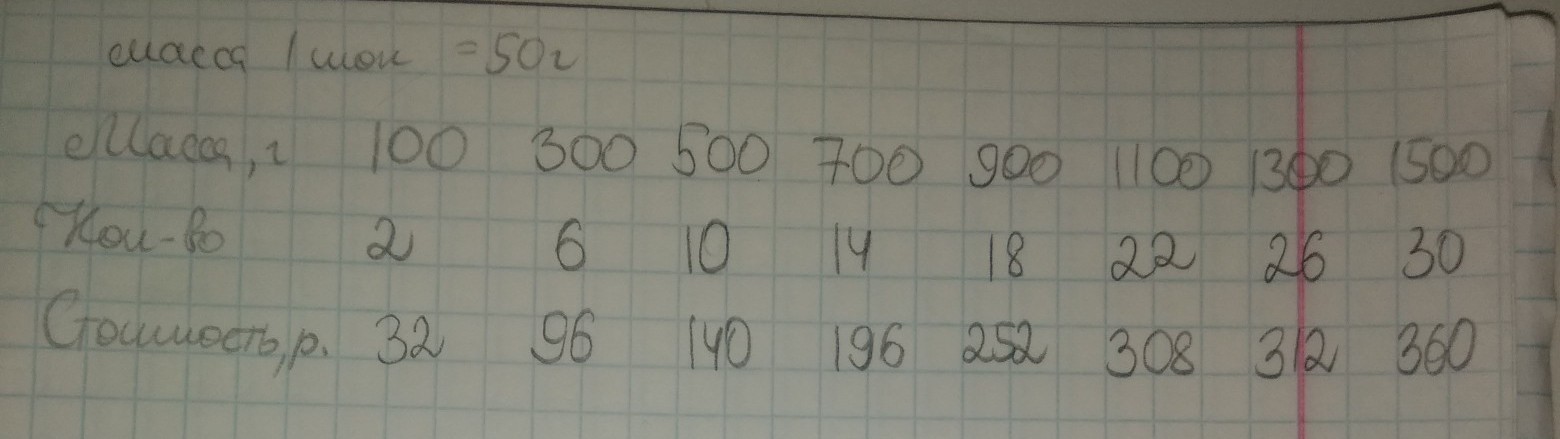 масса 1 шок = 50г
Масса, г 100 300 500 700 900 1100 1300 1500
Кол-во 2 6 10 14 18 22 26 30
Стоимость, р. 32 96 140 196 252 308 312 360